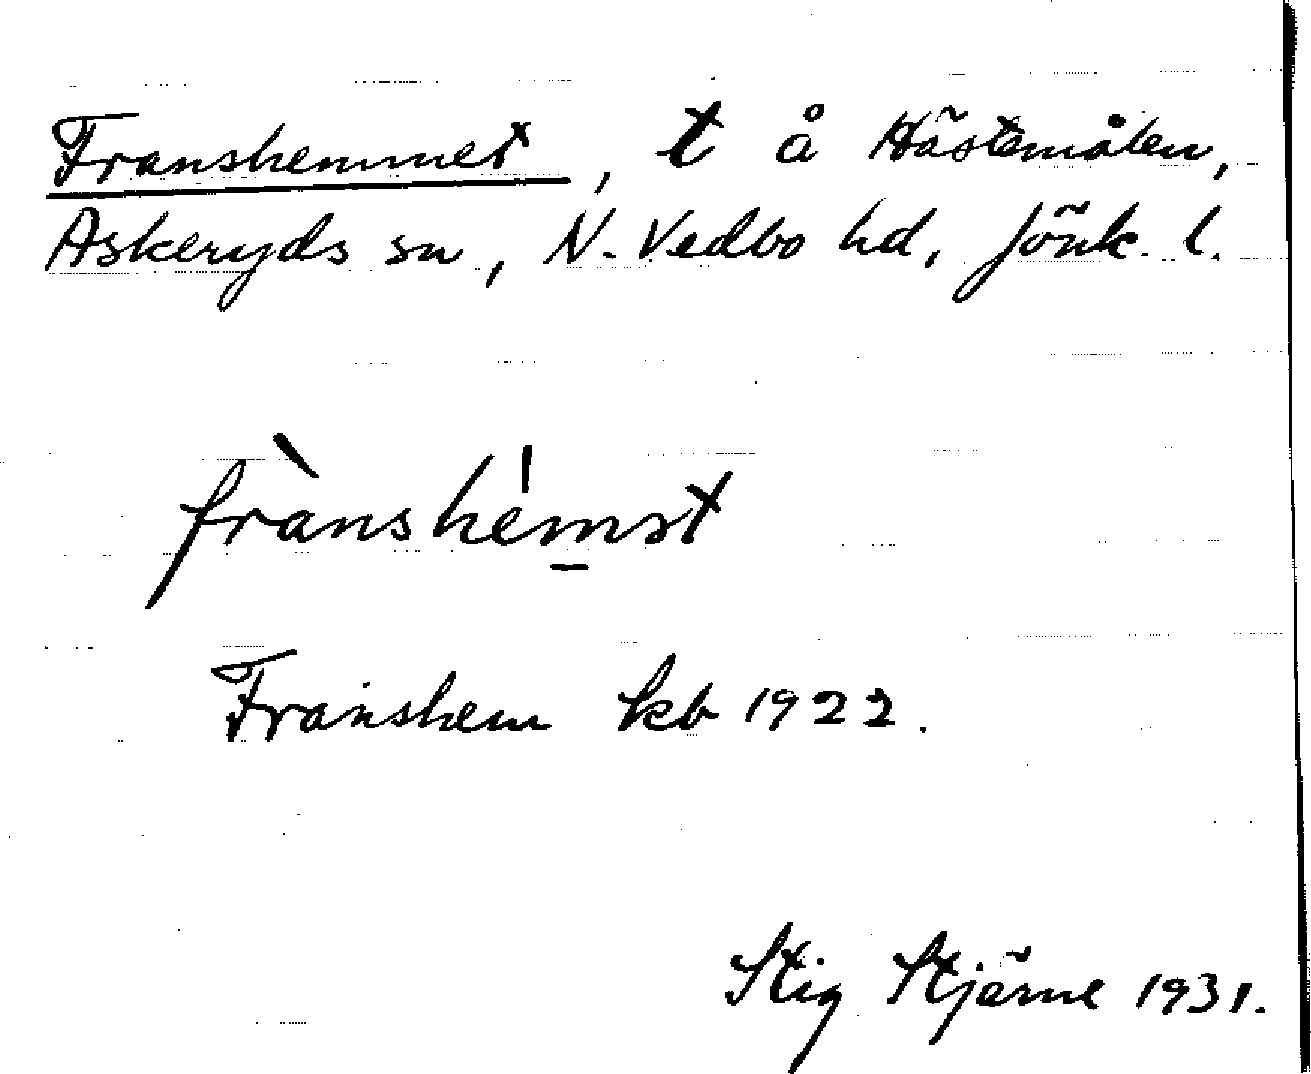 Franshemmet, t å Hästemålen,
Askeryds sn, N. Vedbo hd, Jönk. l.
frànshémst
Franshem kb 1922.
Stig Stjärne 1931.